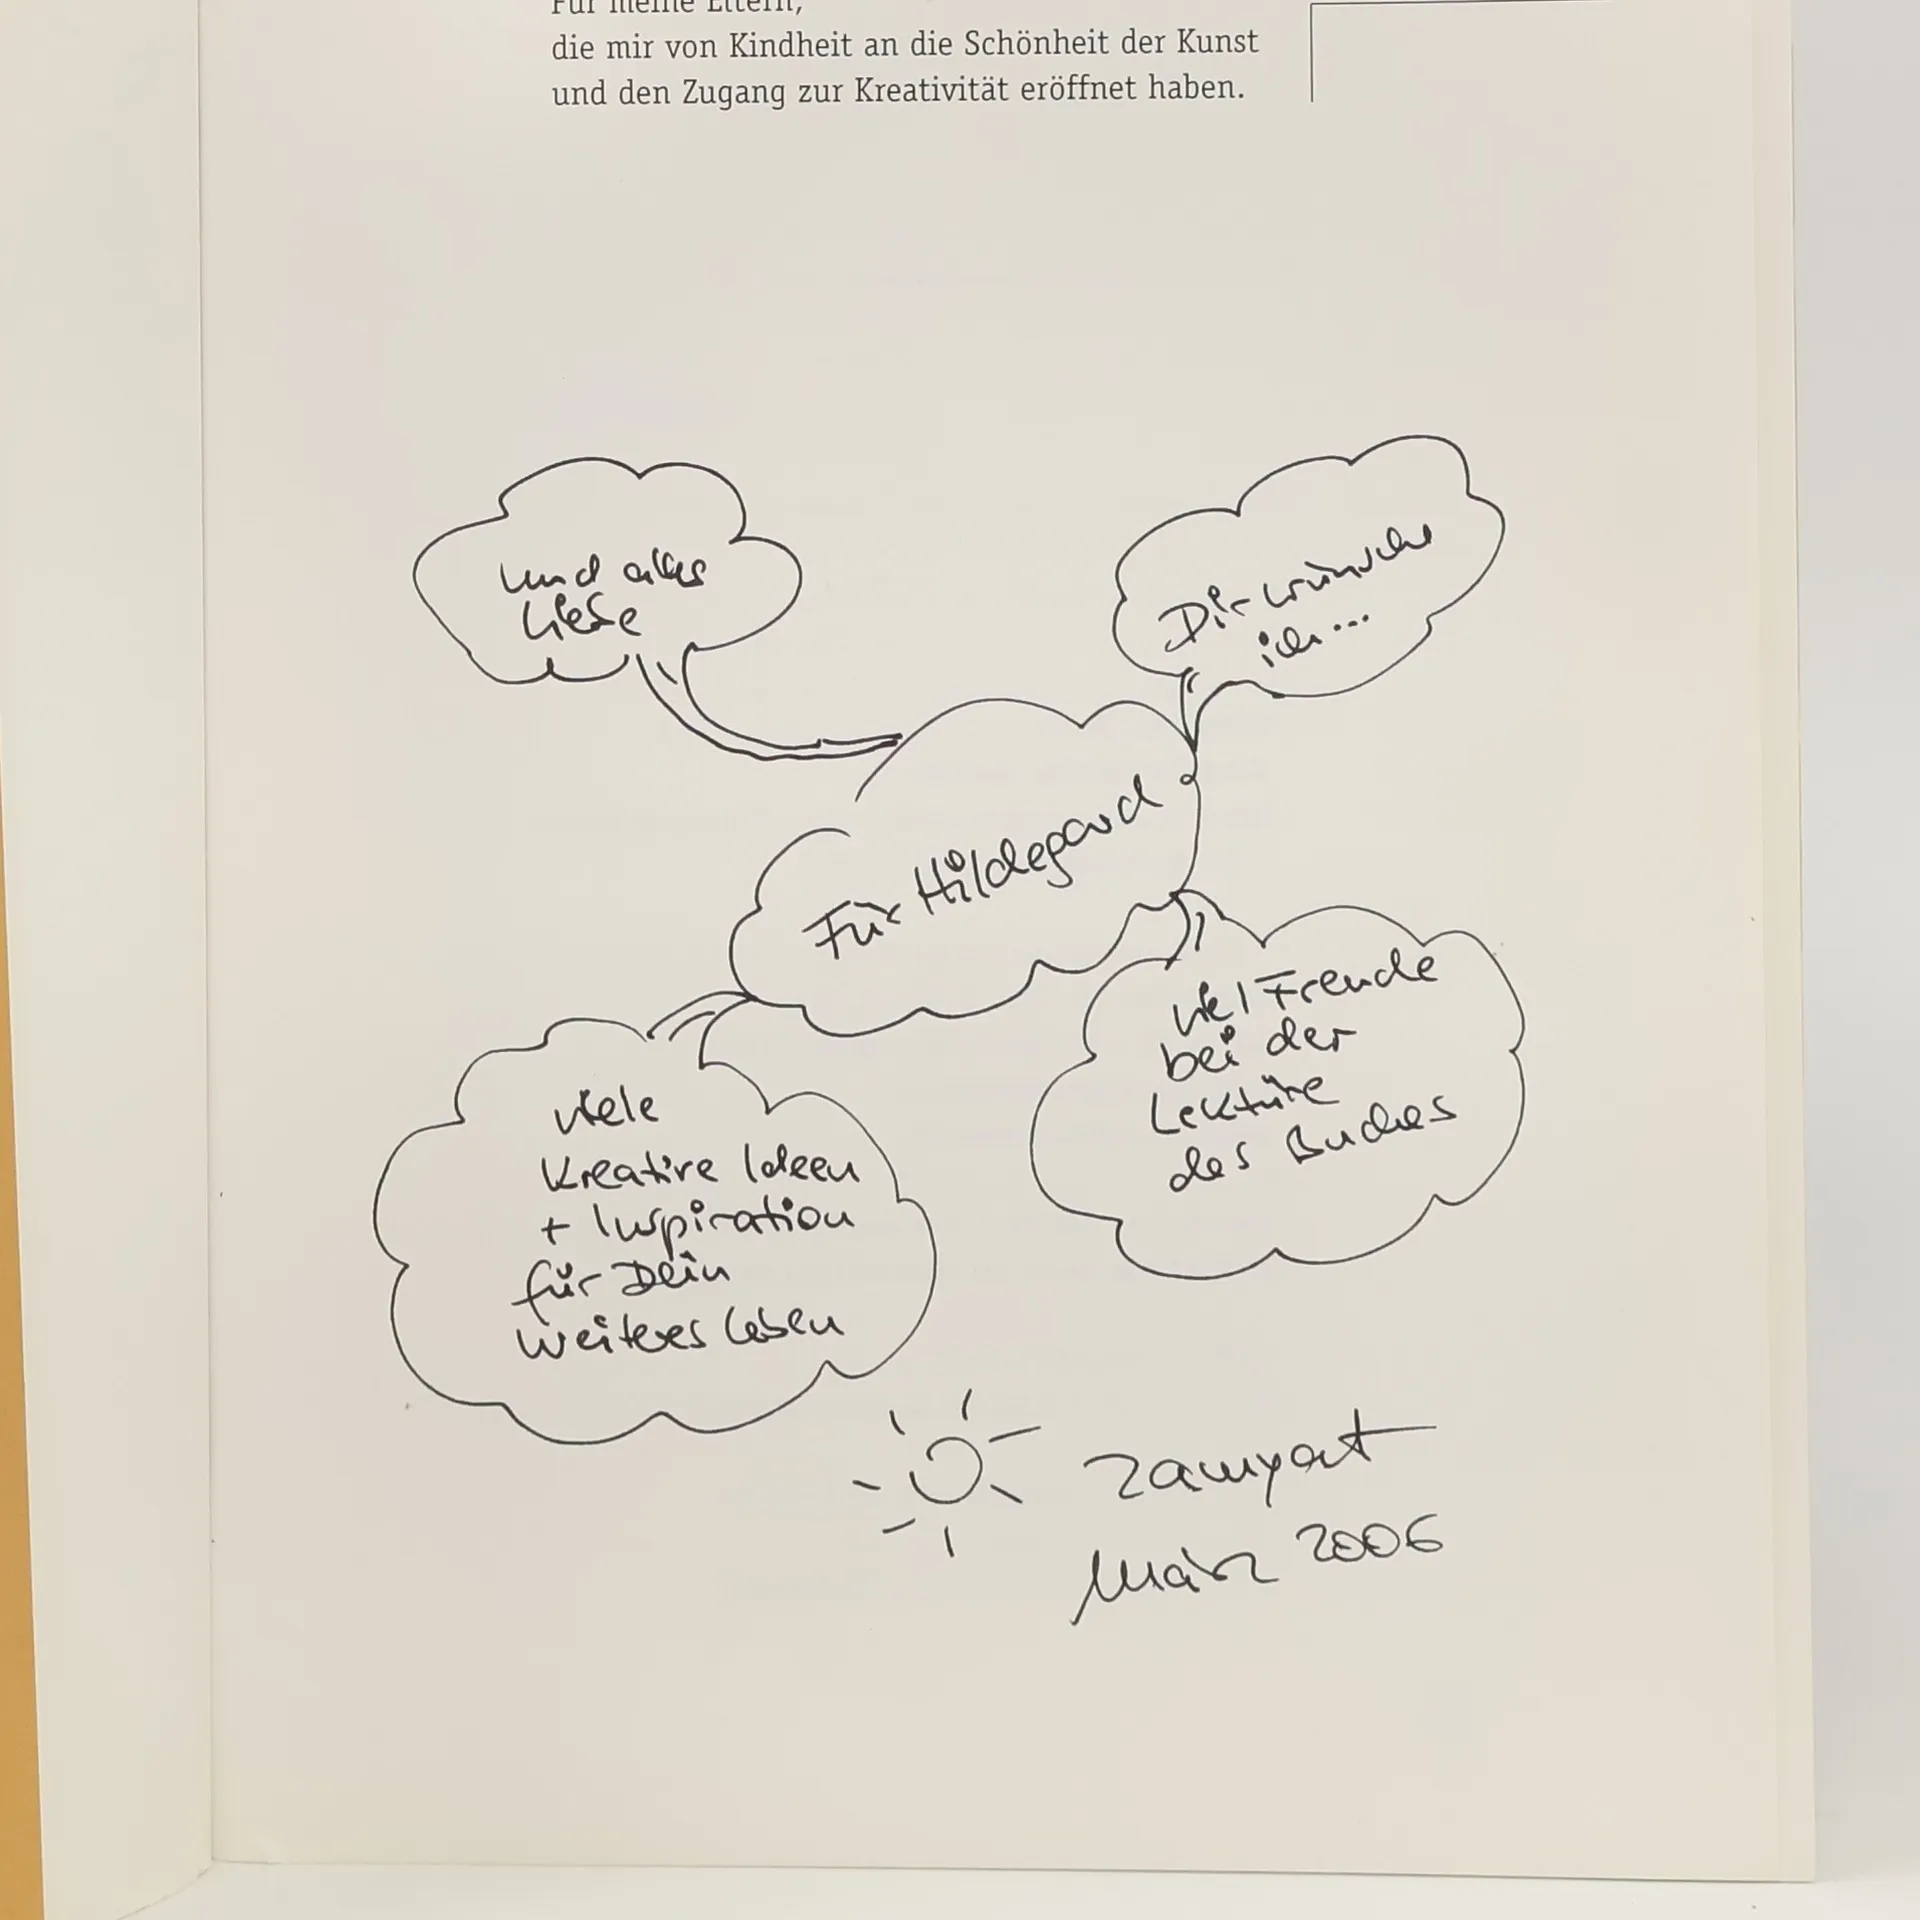 Für meine Eltern,
die mir von Kindheit an die Schönheit der Kunst
und den Zugang zur Kreativität eröffnet haben.
Für Hildegard
Dir wünsche
ich...
viel Freude
bei der
Lektüre
des Buches
viele
kreative Ideen
+ Inspiration
für Dein
weiteres Leben
und alles
Liebe
Zamyat
März 2006